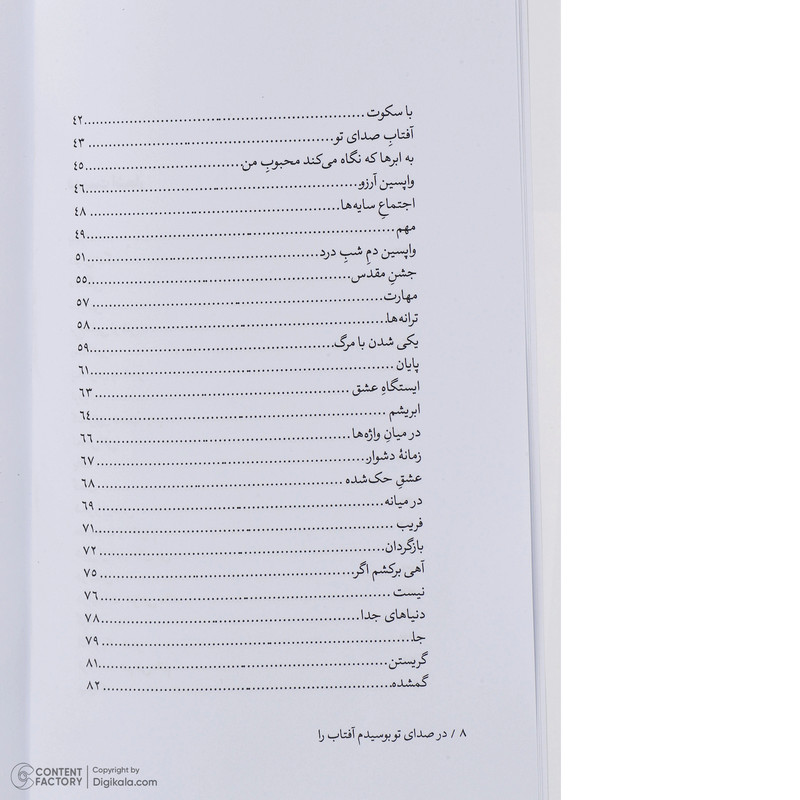 با سکوت ........................................ ٤٢
آفتابِ صدای تو ........................................ ٤٣
به ابرها که نگاه می‌کند محبوبِ من ........................................ ٤٥
واپسین آرزو ........................................ ٤٦
اجتماعِ سایه‌ها ........................................ ٤٨
مهم ........................................ ٤٩
واپسین دمِ شبِ درد ........................................ ٥١
جشنِ مقدس ........................................ ٥٥
مهارت ........................................ ٥٧
ترانه‌ها ........................................ ٥٨
یکی شدن با مرگ ........................................ ٥٩
پایان ........................................ ٦١
ایستگاهِ عشق ........................................ ٦٣
ابریشم ........................................ ٦٤
در میانِ واژه‌ها ........................................ ٦٦
زمانهٔ دشوار ........................................ ٦٧
عشقِ حک‌شده ........................................ ٦٨
در میانه ........................................ ٦٩
فریب ........................................ ٧١
بازگردان ........................................ ٧٢
آهی برکشم اگر ........................................ ٧٥
نیست ........................................ ٧٦
دنیاهای جدا ........................................ ٧٨
جا ........................................ ٧٩
گریستن ........................................ ٨١
گمشده ........................................ ٨٢
٨ / در صدای تو بوسیدم آفتاب را
CONTENT FACTORY
Copyright by
Digikala.com